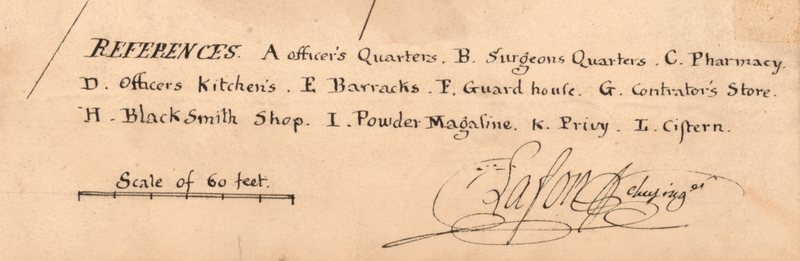 REFERENCES. A officer's Quarters. B. Surgeons Quarters. C. Pharmacy.
D. Officers Kitchen's. E Barracks. F. Guard house. G. Contrator's Store.
H. Black Smith Shop. I. Powder Magasine. K. Privy. L. Cistern.
Scale of 60 feet.
Lafon